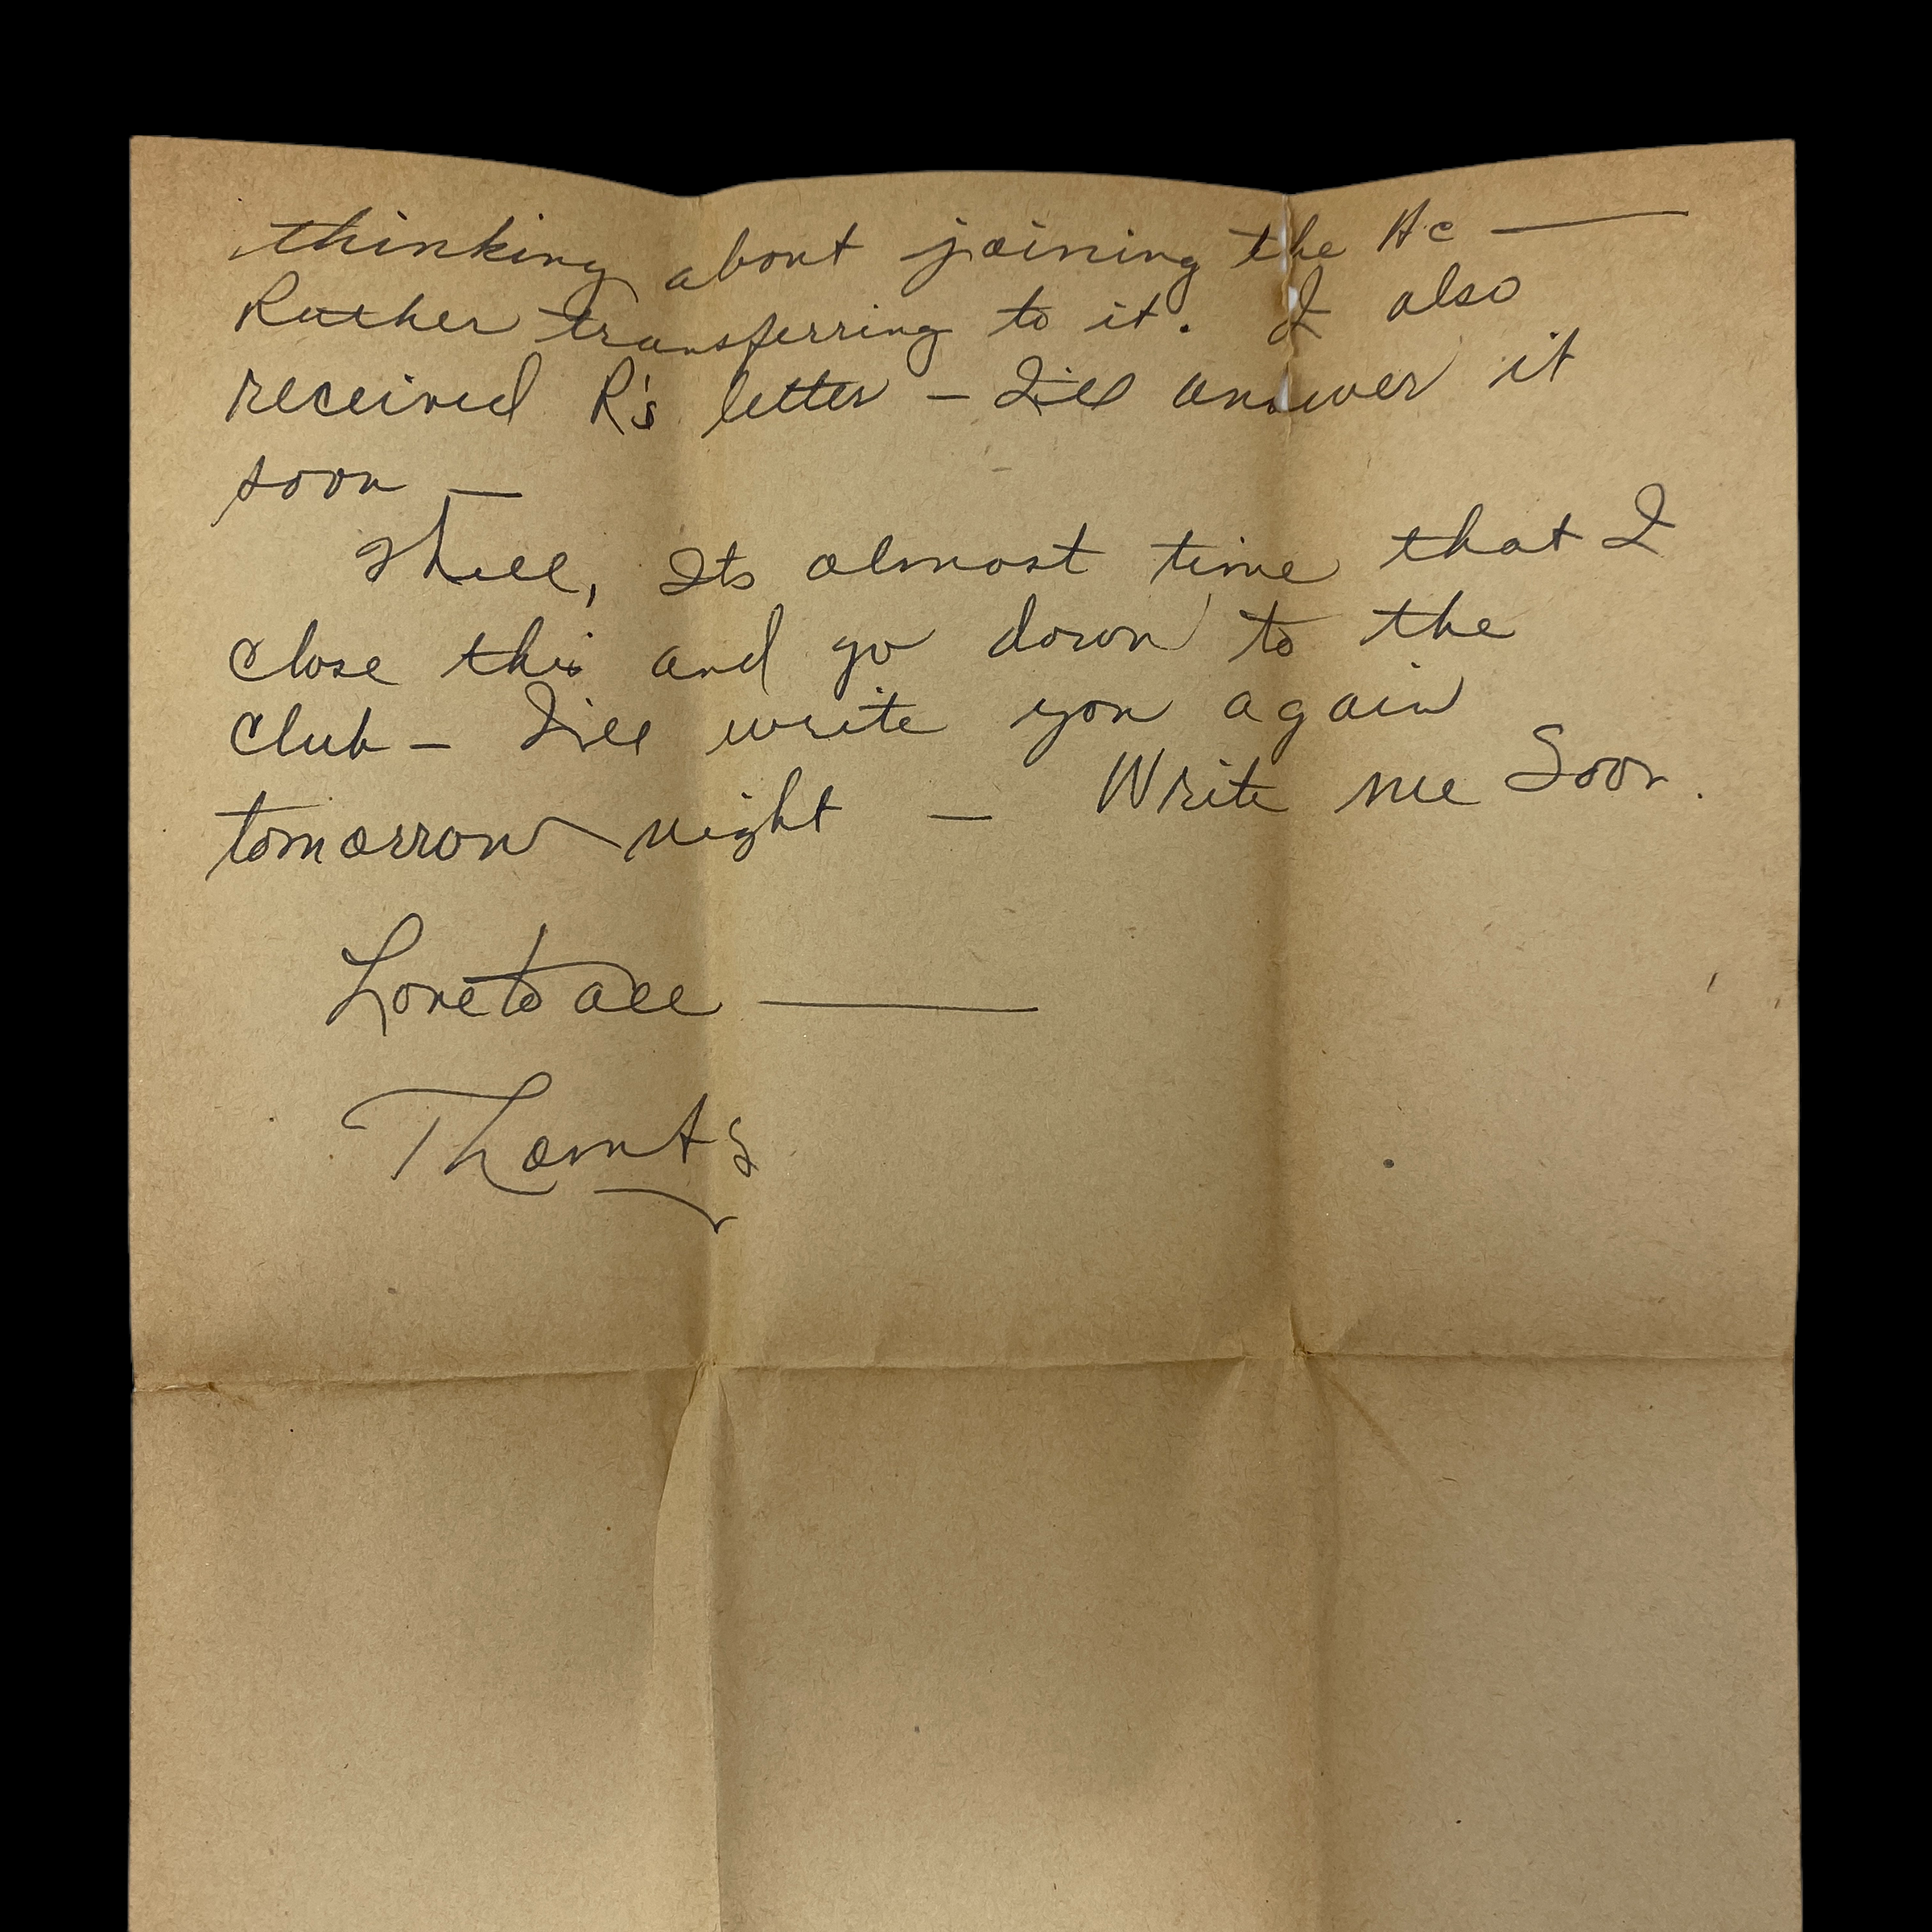 thinking about joining the Ac —
Rather transferring to it. I also
received R's letter — I'll answer it
soon —
Well, Its almost time that I
close this and go down to the
club — I'll write you again
tomorrow night — Write me Soon.
Love to all —